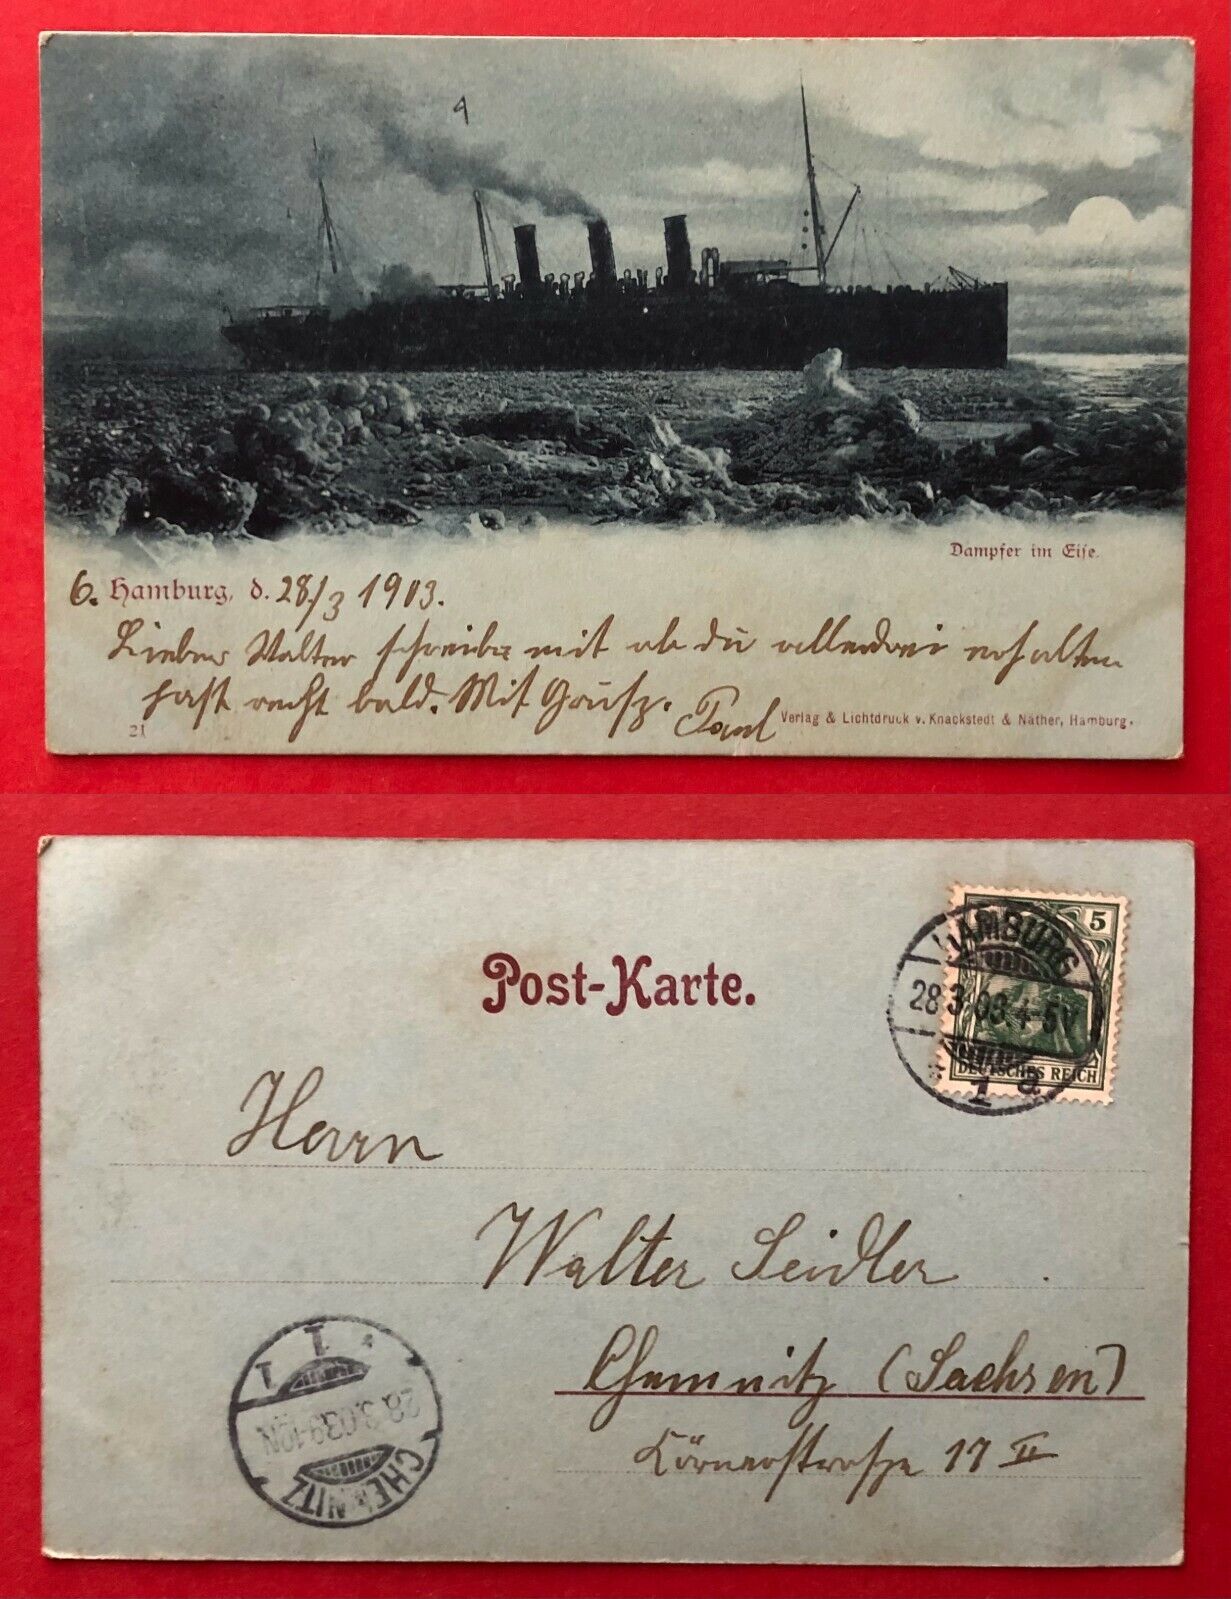 4
Dampfer im Eise.
6. Hamburg, d. 28./3 1903.
Lieber Walter schreibe mit ob du allerdrei erhalten
hast recht bald. Mit Gruß. Paul
21
Verlag & Lichtdruck v. Knackstedt & Näther, Hamburg.
Post-Karte.
5
DEUTSCHES REICH
HAMBURG
28.3.03.4-5N
* 1 a.
Herrn
Walter Seidler
Chemnitz (Sachsen)
Körnerstraße 17 II
CHEMNITZ
28.3.03.9-10N
1